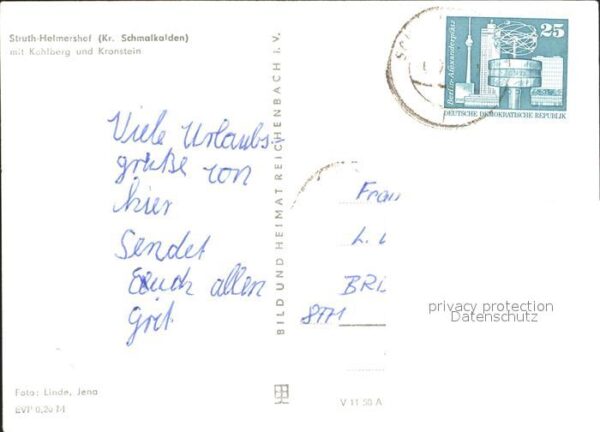 Struth-Helmershof (Kr. Schmalkalden)
mit Kohlberg und Kronstein
25
Berlin-Alexanderplatz
DEUTSCHE DEMOKRATISCHE REPUBLIK
Viele Urlaubs-
grüße von
hier
Sendet
Euch allen
Grit
BILD UND HEIMAT REICHENBACH I. V.
Frau
L.
BRI
8771
privacy protection
Datenschutz
Foto: Linde, Jena
EVP 0,20 M
V 11 50 A